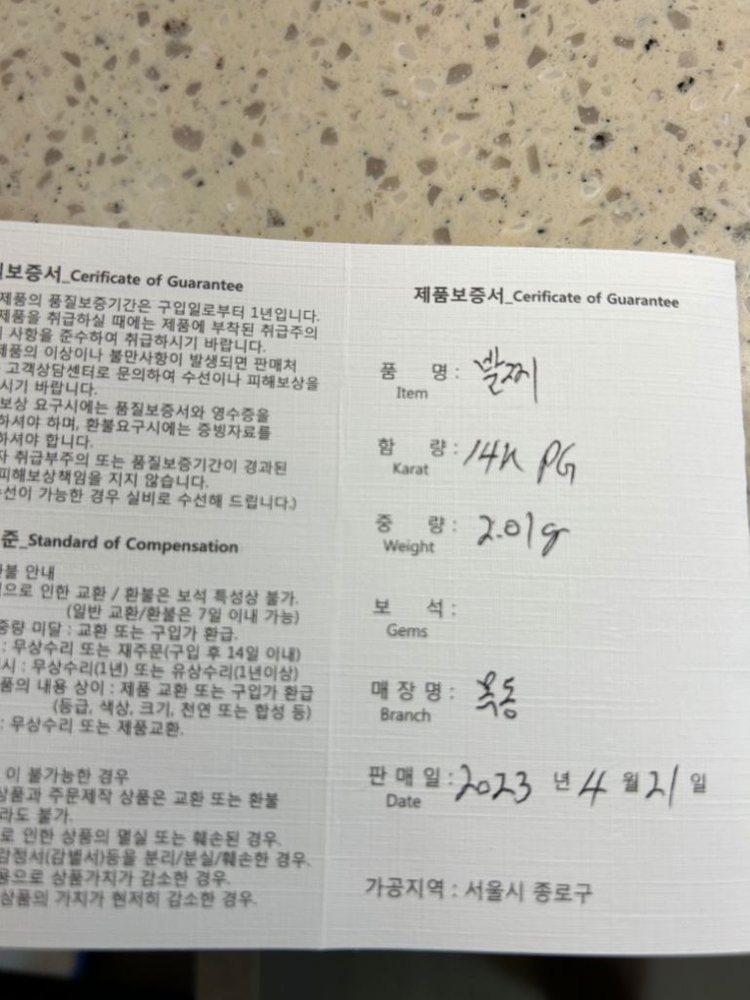 질보증서_Cerificate of Guarantee
제품의 품질보증기간은 구입일로부터 1년입니다.
제품을 취급하실 때에는 제품에 부착된 취급주의
사항을 준수하여 취급하시기 바랍니다.
제품의 이상이나 불만사항이 발생되면 판매처
고객상담센터로 문의하여 수선이나 피해보상을
시기 바랍니다.
보상 요구시에는 품질보증서와 영수증을
하셔야 하며, 환불요구시에는 증빙자료를
하셔야 합니다.
자 취급부주의 또는 품질보증기간이 경과된
피해보상책임을 지지 않습니다.
수선이 가능한 경우 실비로 수선해 드립니다.)
준_Standard of Compensation
환불 안내
으로 인한 교환 / 환불은 보석 특성상 불가.
(일반 교환/환불은 7일 이내 가능)
중량 미달 : 교환 또는 구입가 환급.
: 무상수리 또는 재주문(구입 후 14일 이내)
시 : 무상수리(1년) 또는 유상수리(1년이상)
품의 내용 상이 : 제품 교환 또는 구입가 환급
(등급, 색상, 크기, 천연 또는 합성 등)
: 무상수리 또는 제품교환.
이 불가능한 경우
상품과 주문제작 상품은 교환 또는 환불
라도 불가.
로 인한 상품의 멸실 또는 훼손된 경우.
감정서(감별서)등을 분리/분실/훼손한 경우.
용으로 상품가치가 감소한 경우.
상품의 가치가 현저히 감소한 경우.
제품보증서_Cerificate of Guarantee
품 명 : 발찌
Item
함 량 : 14K PG
Karat
중 량 : 2.01g
Weight
보 석 :
Gems
매 장 명 : 목동
Branch
판 매 일 : 2023 년 4 월 21 일
Date
가공지역 : 서울시 종로구